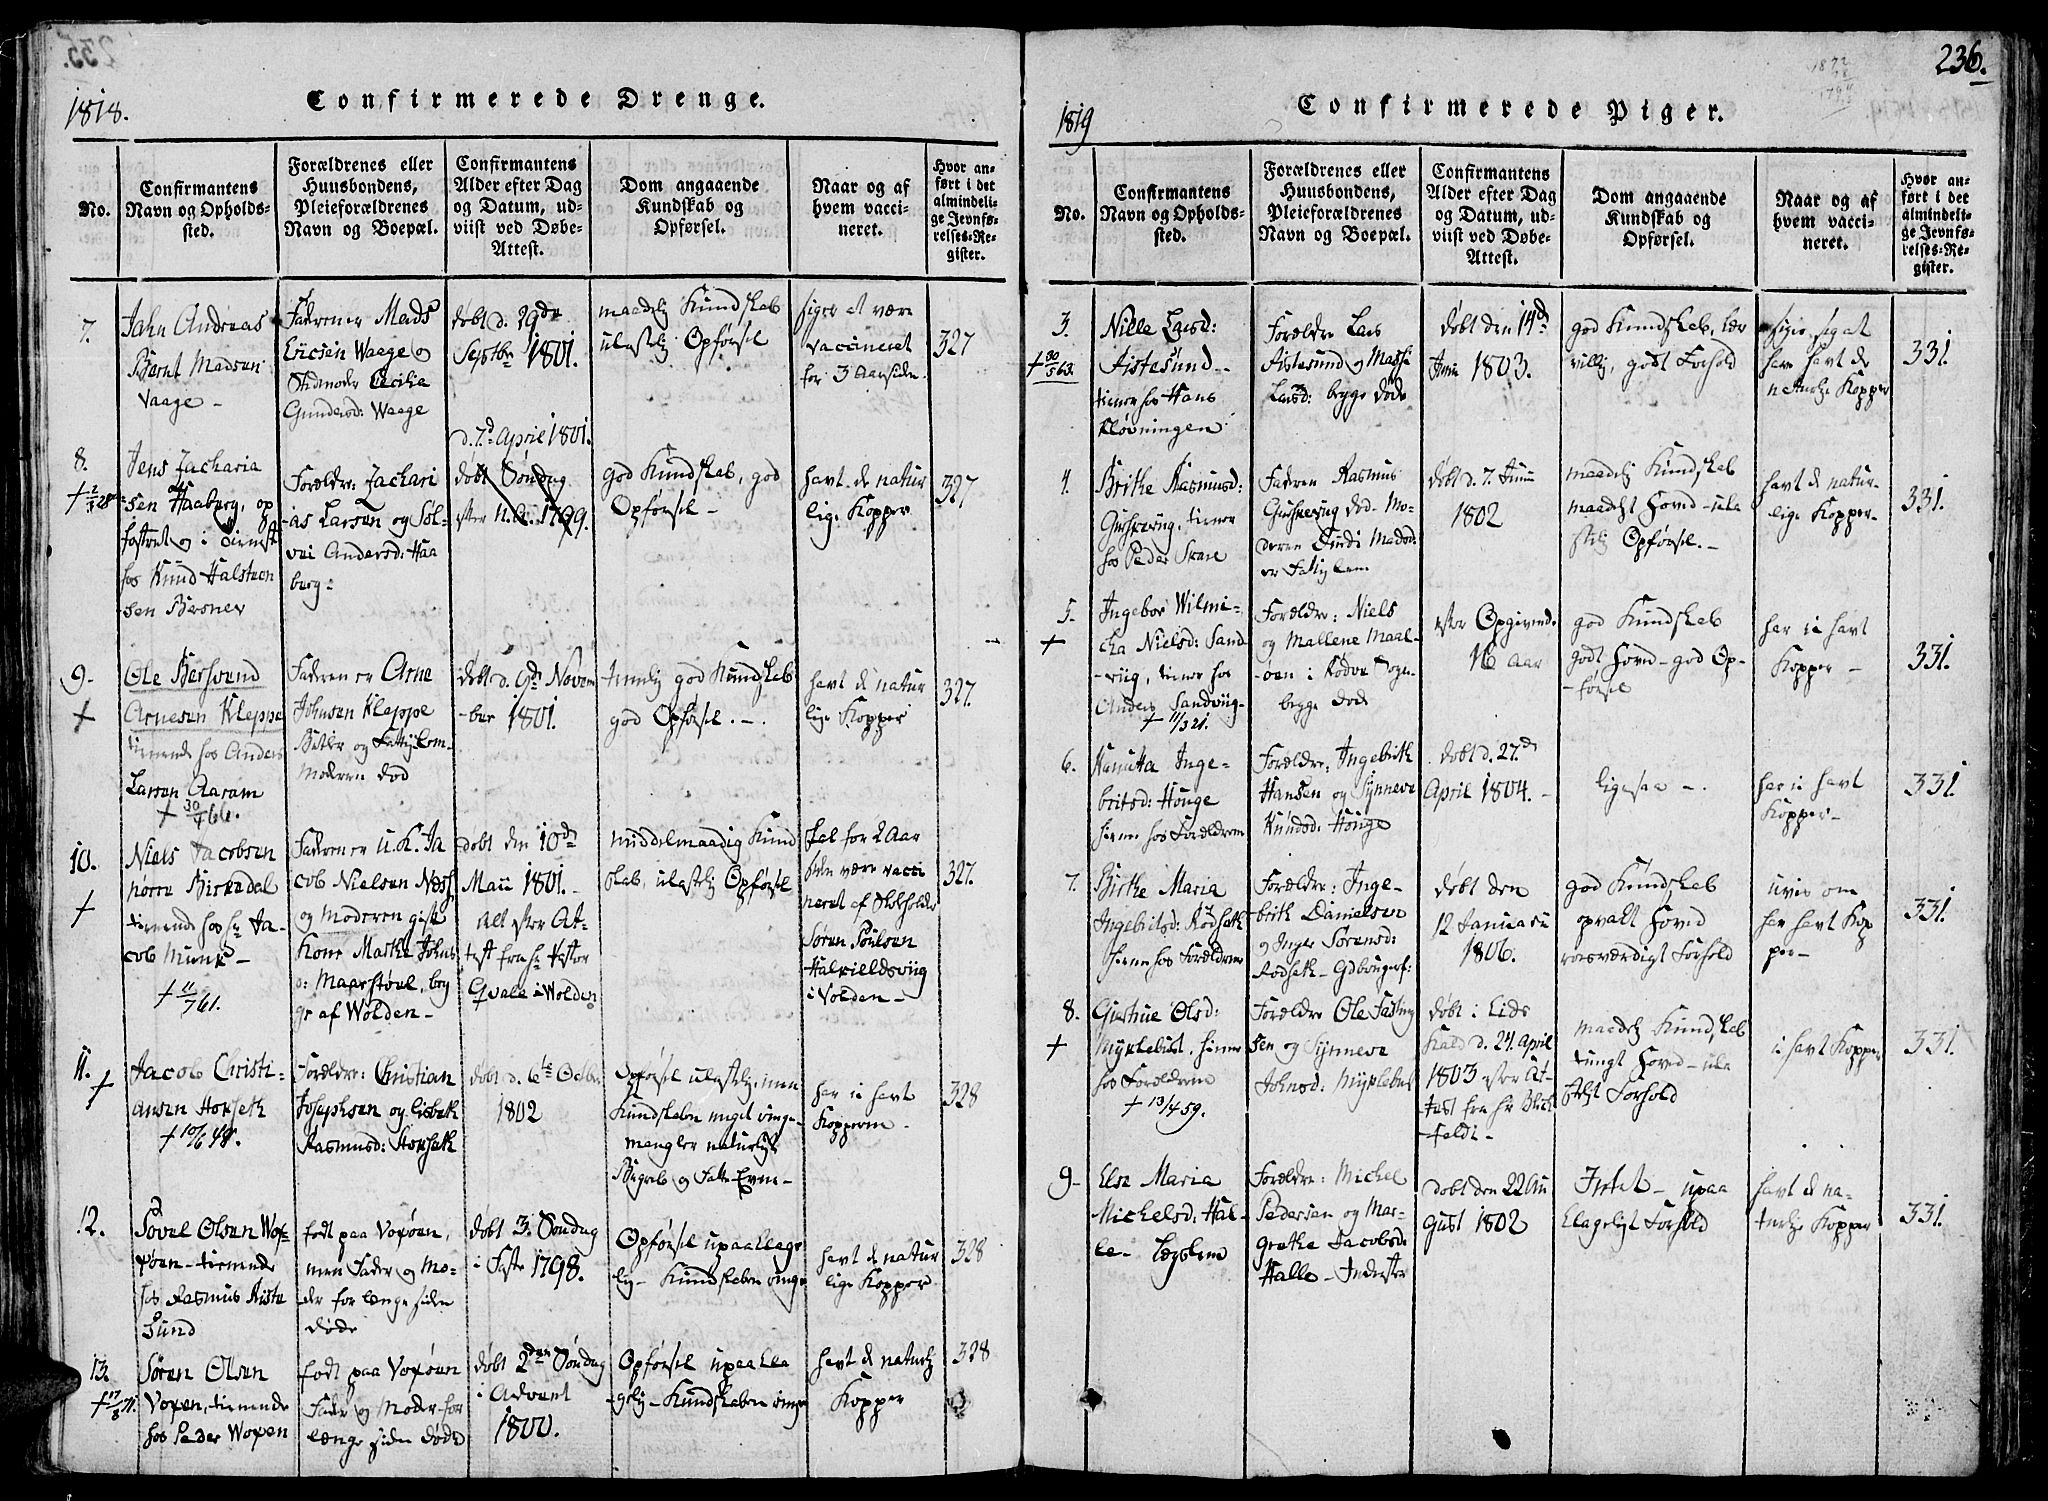 1818.
Confirmerede Drenge.
No.
Confirmantens
Navn og Opholds-
sted.
Forældrenes eller
Huusbondens,
Pleieforældrenes
Navn og Boepæl.
Confirmantens
Alder efter Dag
og Datum, ud-
viist ved Døbe-
Attest.
Dom angaaende
Kundskab og
Opførsel.
Naar og af
hvem vacci-
neret.
Hvor an-
ført i det
almindeli-
ge Jevnfø-
relses-Re-
gister.
7.
Jahn Andreas
Bernt Madsen
Vaage -
Faderen er Mads
Ericsen Waage og
Stedmoder Cecilia
Gundersd: Waage
døbt d. 29de
Septbr 1801.
maadelig Kundskab
ulastelig Opførsel
siger at være
vaccineret
for 3 Aar siden.
327
8.
Jens Zacharia
sen Haaberg, op
fostret og i tieneste
hos Knud Halsteen
sen
Forældre: Zachari
as Larsen og Sol-
vei Andersd: Haa
berg:
d. 7d April 1801.
døbt Søndag
efter N. A. 1799.
god Kundskab, god
Opførsel -
havt de natur
lige Kopper
327
9-
+
Ole Bersvend
Arnesen Kleppe
tienende hos Anders
Larsen Aaram
+ 30/4 66.
Faderen er Arne
Johnsen Kleppe
Betler og Fattiglem -
Moderen død
døbt d. 9de Novem
-ber 1801.
temelig god Kundskab
god Opførsel. -.
havt de natur
lige Kopper
327.
10.
+
Niels Jacobsen
nørre Birkedal
tienende hos Hr Ja-
cob Munk -
+ 11/7 61.
Faderen er U. K. Ja
cob Nielsen Næss
og Moderen gift
Kone Marthe Johns
d: Maurstøul, beg
ge af Wolden -
døbt den 10de
Maii 1801. -
alt efter At-
test fra Hr Pastor
Qvale i Wolden
middelmaadig Kund
skab, ulastelig Opførsel
skal for 2 Aar
siden være vacci
neret af Skoleholder
Søren Poulsen
Halkieldsviig
i Volden -
327.
11.
+
Jacob Christi-
ansen Horseth
+ 10/6 48.
Forældre: Christian
Josephsen og Lisbeth
Rasmusd: Horseth
døbt d. 6te Octbr
1802
Opførsel ulastelig, men
Kundskaben meget ringe -
mangler naturligt
Begreb og Fatte-Evne -
har ei havt
Kopperne -
328
12.
Sovel Olsen Vox-
øen - tienende
hos Rasmus Aiste
Sund
født paa Voxøen,
men Fader og Mo-
der for længe siden
døde
døbt 3. Søndag
i Faste 1798.
Opførsel upaaklage
lig - Kundskaben ringe
havt de natur
lige Kopper
328
13.
+ 17/8 71.
Søren Olsen
Voxen, tienende
hos Peder Woxen
født paa Voxøen
Fader og Moder for
længe siden døde
døbt 2den Søndag
i Advent
1800.
Opførsel upaakla
gelig - Kundskaben ringe
havt de naturlg
Kopper
328
236.
1819
Confirmerede Piger.
No.
Confirmantens
Navn og Opholds-
sted.
Forældrenes eller
Huusbondens,
Pleieforældrenes
Navn og Boepæl.
Confirmantens
Alder efter Dag
og Datum, ud-
viist ved Døbe-
Attest.
Dom angaaende
Kundskab og
Opførsel.
Naar og af
hvem vacci-
neret.
Hvor an-
ført i det
almindeli-
ge Jevnfø-
relses-Re-
gister.
3.
+ 30/5 63.
Nille Larsd:
Aistesund -
tiener hos Hans
Kløvningen
Forældre Lars
Aistesund og Massi
Larsd: begge døde
døbt den 14d
Juni 1803.
god Kundskab, lær
villig, godt Forhold
siger sig at
have havt de
naturlge Kopper
331.
4.
Birthe Rasmusd:
tiener
hos Peder Skare
Faderen Rasmus
død - Mo-
deren Gundi Madsd:
er Fattiglem
døbt d. 7. Junii
1802
maadelig Kundskab
maadeligt Hoved - ula
stelig Opførsel. -
havt de natur-
lige Kopper -
331.
5.
+
Ingebor Wilmi-
cha Nielsd: Sand
-viig, tiener hos
Anders Sandviig -
+ 11/3 21.
Forældre: Niels
og Mallene Maal-
øen i Rødøe Sogn -
begge døde
efter Opgivende
16 Aar
god Kundskab
godt Hoved - god Op-
-førsel
har ei havt
Kopper -
331.
6.
Inge-
britsd: Houge
hiemme hos Forældrene
Forældre: Ingebrith
Hansen og Synneve
Knudsd: Houge
døbt d. 27de
April 1804. -
ligesaa -.
har ei havt
Kopper -
331.
7.
Birthe Maria
Ingebritsd: Rødseth
hiemme hos Forældrene
Forældre: Inge-
brith Danielsen
og Inger Sørensd:
Rødseth - Gdbrugerf:
døbt den
12 Januarii
1806.
god Kundskab
opvakt Hoved
roesværdigt Forhold
uvis om
har havt Kop
per -
331.
8.
+
Giertrue Olsd:
Myklebust, hieme
hos Forældrene
+ 13/4 59.
Forældre Ole Fasting
sen og Synneve
Johnsd: Myklebust
døbt i Eids
Kald d. 24. April
1803 efter At-
test fra Hr Blich
feldt -
maadelg Kundskab
tungt Hoved - ula
steligt Forhold
ei havt Kopper
331.
9-
Else Maria
Michelsd: Hal-
le - Lægslem
Forældre: Michel
Pedersen og Mar-
grethe Jacobsd:
Halle - Inderster
døbt den 22 Au
gust 1802
Intet - upaa
klageligt Forhold
havt de na-
turlge Kopper
331.